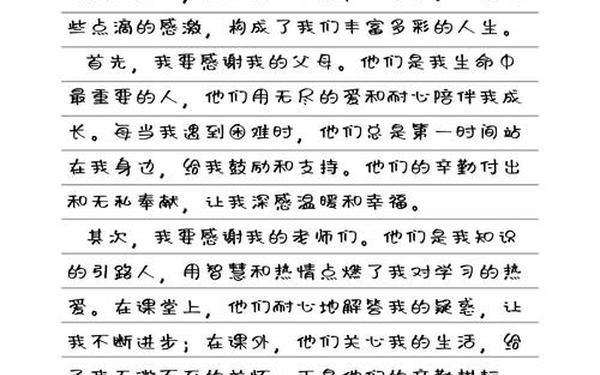 些点滴的感激，构成了我们丰富多彩的人生。
首先，我要感谢我的父母。他们是我生命中
最重要的人，他们用无尽的爱和耐心陪伴我成
长。每当我遇到困难时，他们总是第一时间站
在我身边，给我鼓励和支持。他们的辛勤付出
和无私奉献，让我深感温暖和幸福。
其次，我要感谢我的老师们。他们是我知识
的引路人，用智慧和热情点燃了我对学习的热
爱。在课堂上，他们耐心地解答我的疑惑，让
我不断进步；在课外，他们关心我的生活，给